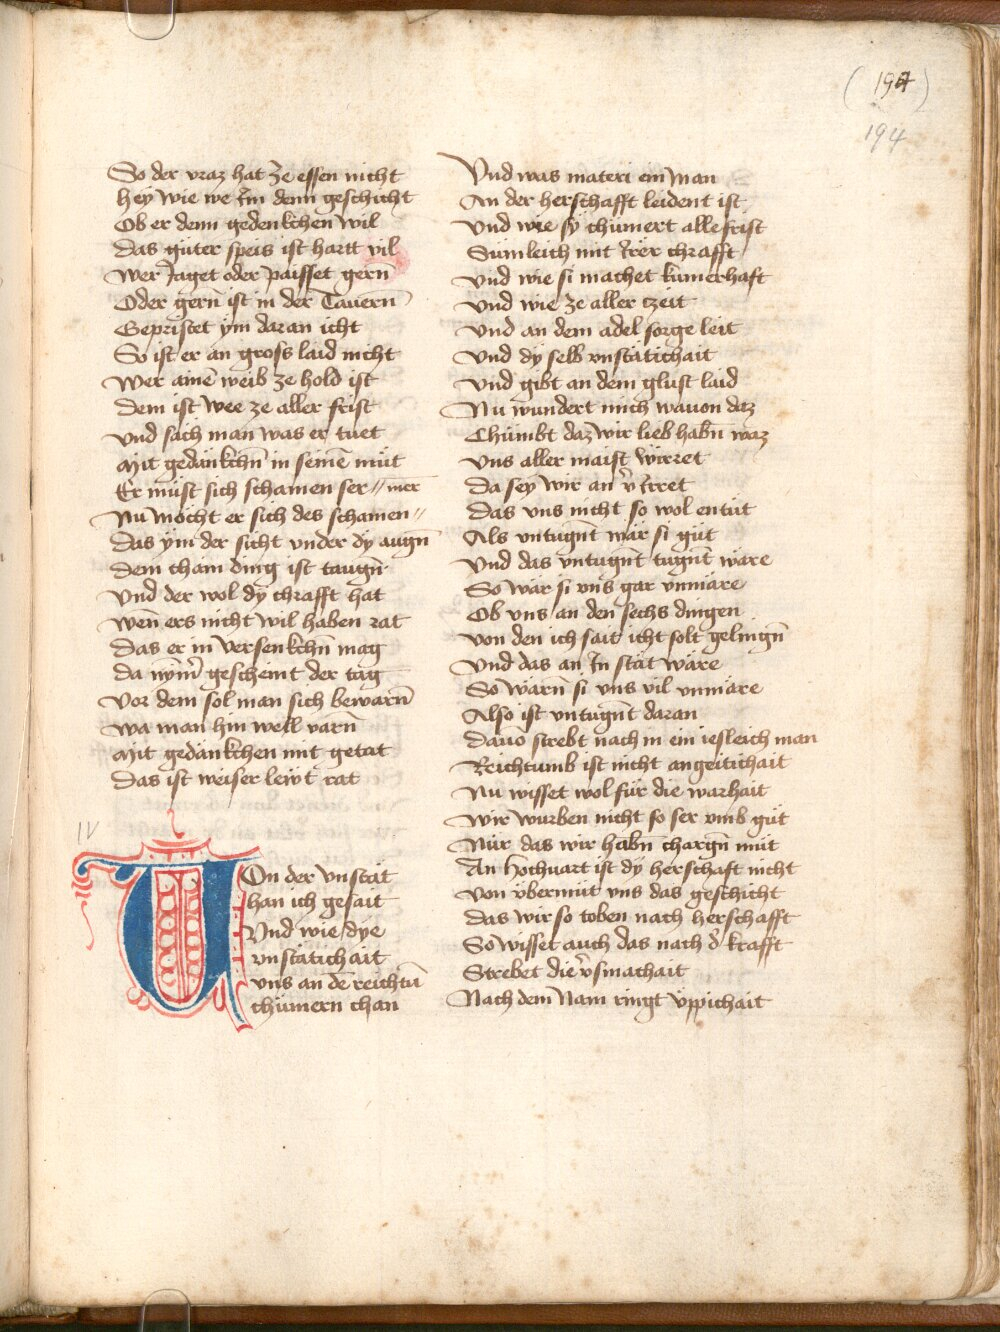 (194)
194
So der vraz hat ze essen nicht
hey wie we im denn geschicht
Ob er denn gedenkchen wil
Das güter speis ist hartt vil
Wer Jaget oder paisset gern̄
Oder gern̄ ist in der Tauern̄
Gepristet ÿm daran icht
So ist er an gross laid nicht
Wer ainē weib ze hold ist
Dem ist wee ze aller frist
Vnd sach man was er tuet
Mit gedänkchn̄ in seinē müt
Er müst sich schamen ser // mēr
Nu mocht er sich des schamen //
Das ÿm der sicht vnder dÿ augn̄
Dem cham ding ist taugn̄
Vnd der wol dÿ chrafft hat
Wen̄ ers nicht wil haben rat
Das er in versenkchn̄ mag
Da nÿm̄ gescheint der tag
Vor dem sol man sich bewarn̄
Wa man hin well varn̄
Mit gedänkchen mit getat
Das ist weiser lewt rat
IV
VOn der vnstät
han ich gesait
Vnd wie dÿe
vnstätichait
vns an dē reichtū
chümern chan
Vnd was materi ein man
An der herschafft leident ist
Vnd wie sÿ chümert alle frist
Sümleich mit irer chrafft
Vnd wie si machet kumerhaft
Vnd wie ze aller czeit
Vnd an dem adel sorge leit
Vnd dÿ selb vnstätichait
Vnd gibt an dem glust laid
Nu wundert mich wauon daz
Chümbt daz wir lieb habn̄ waz
Vns aller maist wirret
Da seÿ wir an v̄irret
Das vns nicht so wol entüt
Als vntugn̄t wär si güt
Vnd das vntugn̄t tugn̄t wäre
So wär si vns gar vnmäre
Ob vns an den sechs dingen
Von den ich sait icht solt gelingn̄
Vnd das an In stät wäre
So wärn̄ si vns vil vnmäre
Also ist vntugn̄t daran
Dauo strebt nach in ein iesleich man
Reichtumb ist nicht angeitichait
Nu wisset wol für die warhait
Wir wurben nicht so ser vmb güt
Nür das wir habn̄ chargn̄ müt
An Hochuart ist dÿ herschaft nicht
Von v̈bermüt vns das geschicht
Das wir so toben nach herschafft
So wisset auch das nach d̄ krafft
Strebet die v̄smachait
Nach dem Nam ringt v̈ppichait